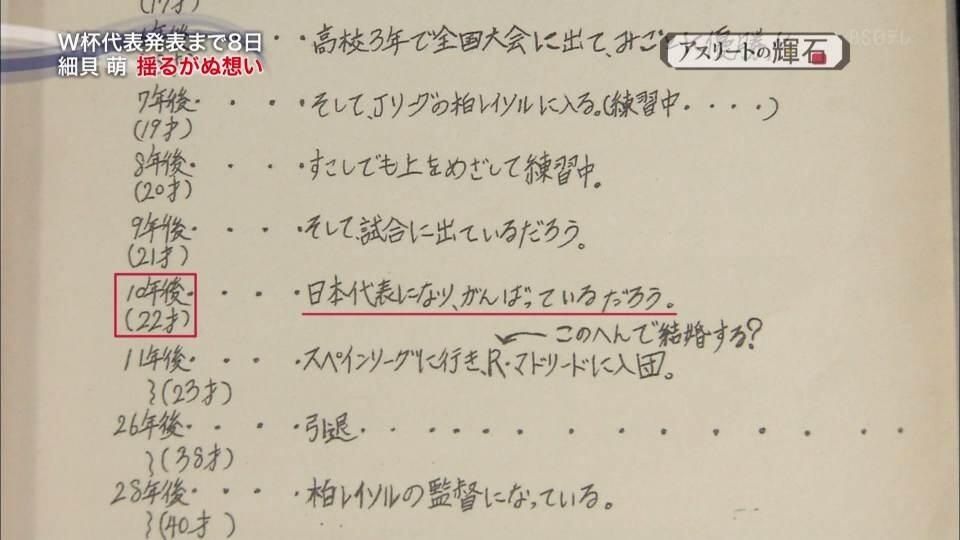 (17才)
W杯代表発表まで8日
細貝 萌 揺るがぬ想い
アスリートの輝石
年後・・・・高校3年で全国大会に出て、みごと優勝
7年後・・・・そして、Jリーグの柏レイソルに入る。(練習中・・・・)
(19才)
8年後・・・・すこしでも上をめざして練習中。
(20才)
9年後・・・・そして、試合に出ているだろう。
(21才)
10年後・・・・日本代表になり、がんばっているだろう。
(22才)
このへんで結婚する?
11年後・・・・スペインリーグに行き、R・マドリードに入団。
(23才)
26年後・・・・引退・・・・・・・・・・・・・
(38才)
28年後・・・・柏レイソルの監督になっている。
(40才)